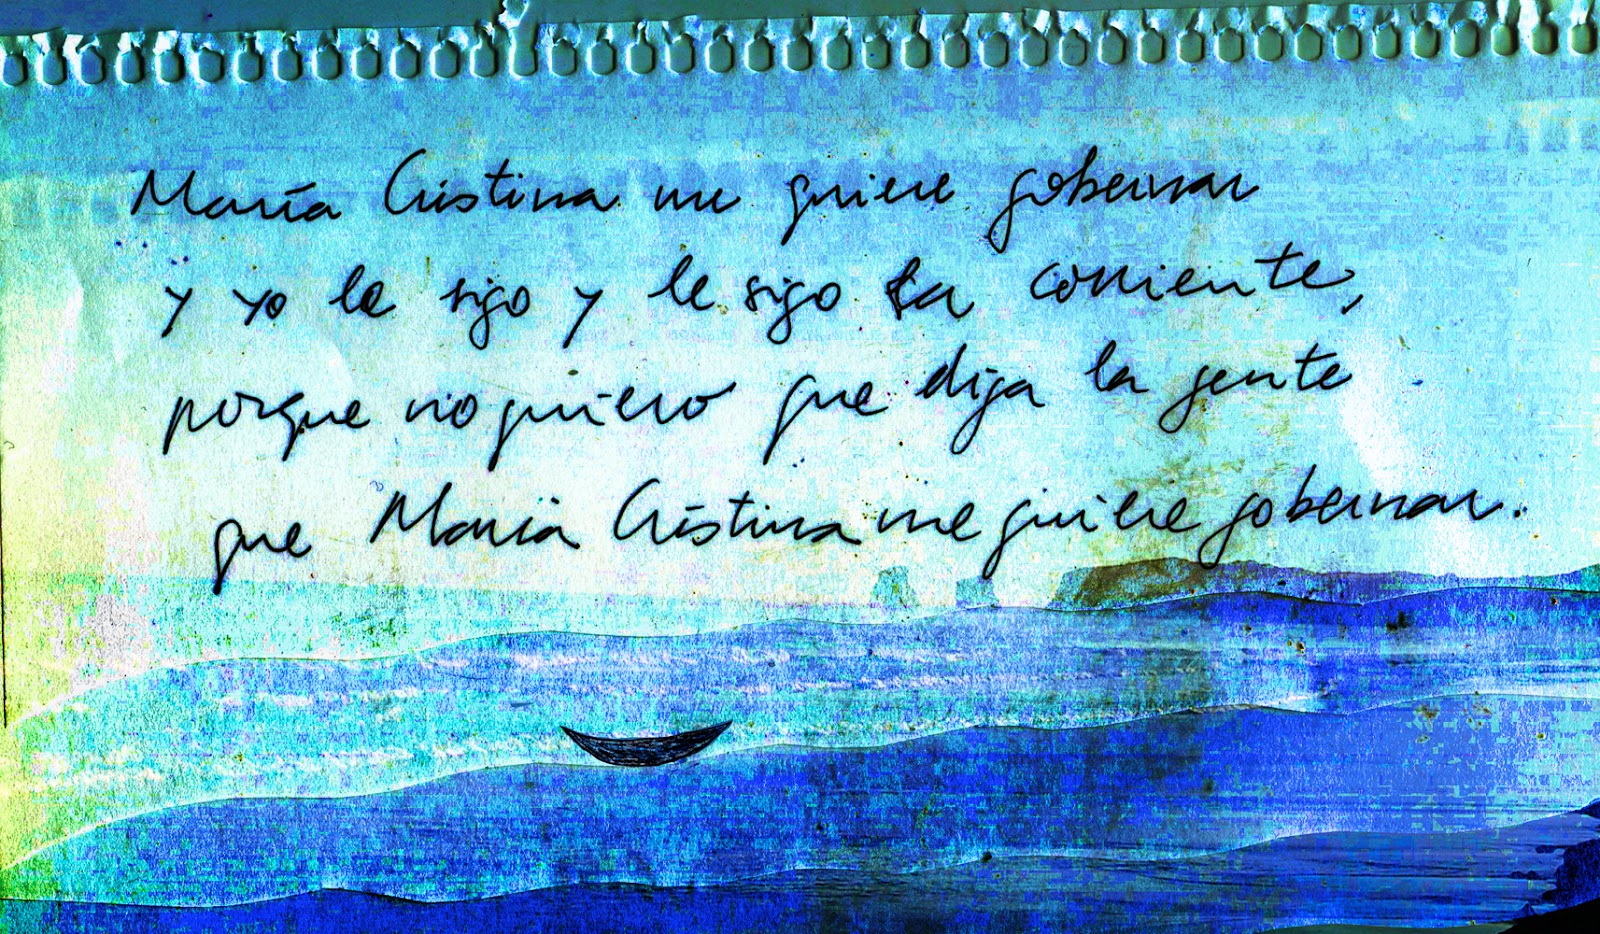 María Cristina me quiere gobernar
y yo le sigo y le sigo la corriente,
porque no quiero que diga la gente
que María Cristina me quiere gobernar.